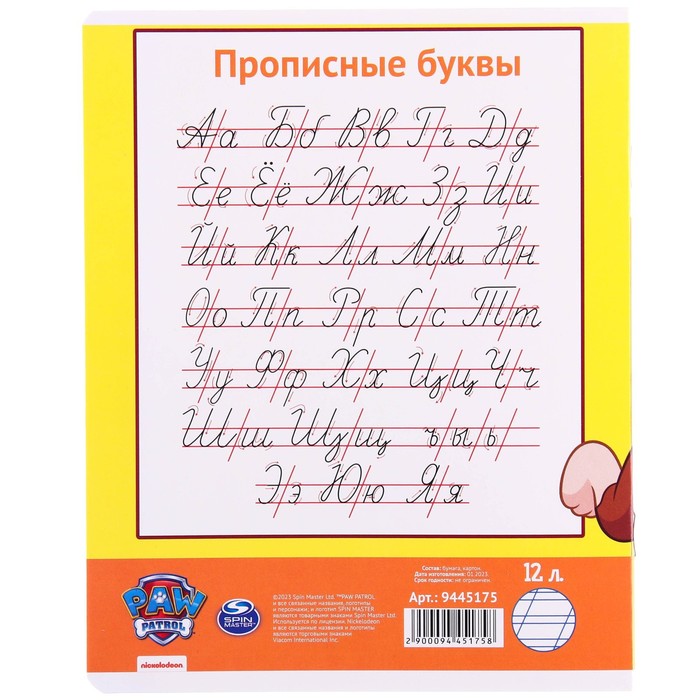 Прописные буквы
Аа Бб Вв Гг Дд
Ее Ёё Жж Зз Ии
Йй Кк Лл Мм Нн
Оо Пп Рр Сс Тт
Уу Фф Хх Цц Чч
Шш Щщ ъ ы ь
Ээ Юю Яя
PAW
PATROL
nickelodeon
SPIN
MASTER
©2023 Spin Master Ltd. ™PAW PATROL
и все связанные названия, логотипы
и персонажи; и логотип SPIN MASTER
являются товарными знаками Spin Master Ltd.
Используется по лицензии. Nickelodeon
и все связанные названия и логотипы
являются торговыми знаками
Viacom International Inc.
Состав: бумага, картон.
Дата изготовления: 01.2023
Срок годности: не ограничен.
Арт.: 9445175
2 900094 451758
12 л.